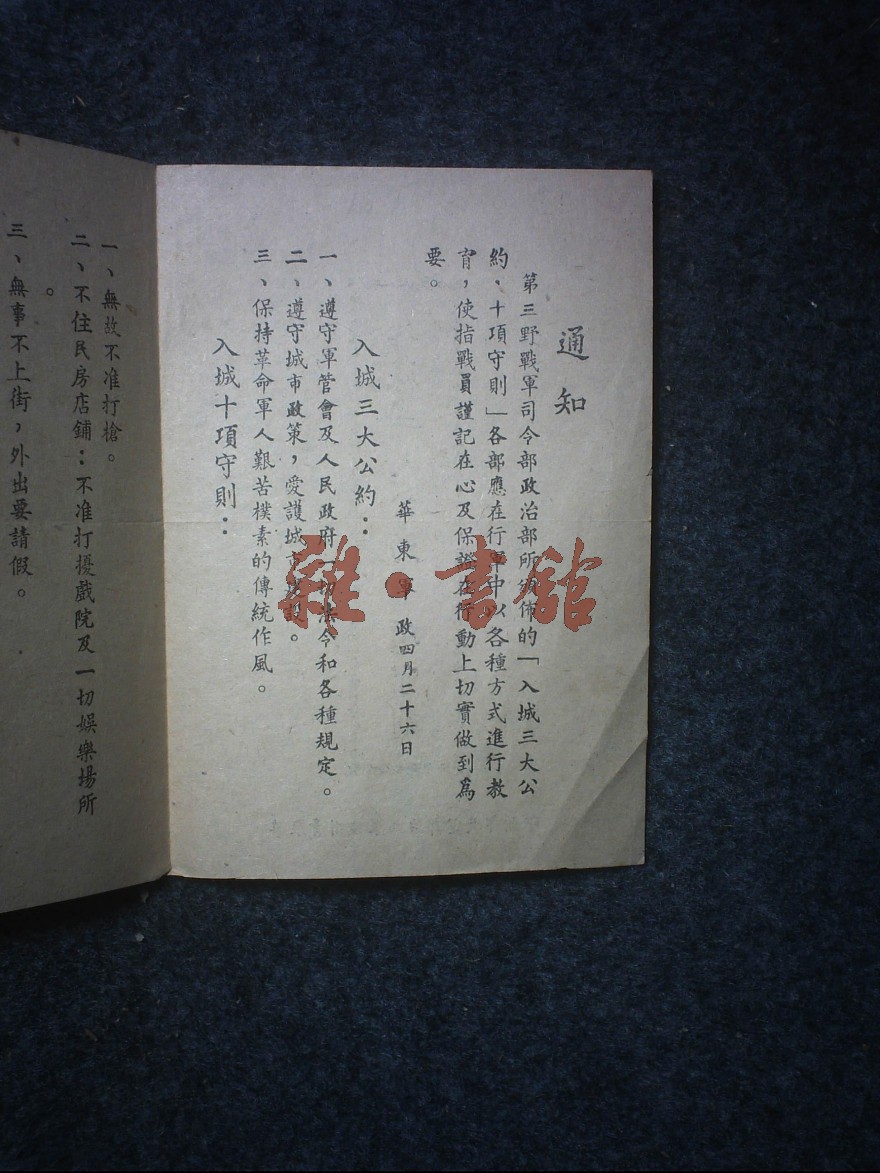 通知
第三野戰軍司令部政治部所頒佈的「入城三大公
約・十項守則」各部應在行軍中以各種方式進行教
育，使指戰員謹記在心及保證在行動上切實做到爲
要。
華東軍政四月二十六日
入城三大公約：
一、遵守軍管會及人民政府一切法令和各種規定。
二、遵守城市政策，愛護城市建設。
三、保持革命軍人艱苦樸素的傳統作風。
入城十項守則：
一、無故不准打槍。
二、不住民房店鋪：不准打擾戲院及一切娛樂場所
。
三、無事不上街，外出要請假。
雜・書館